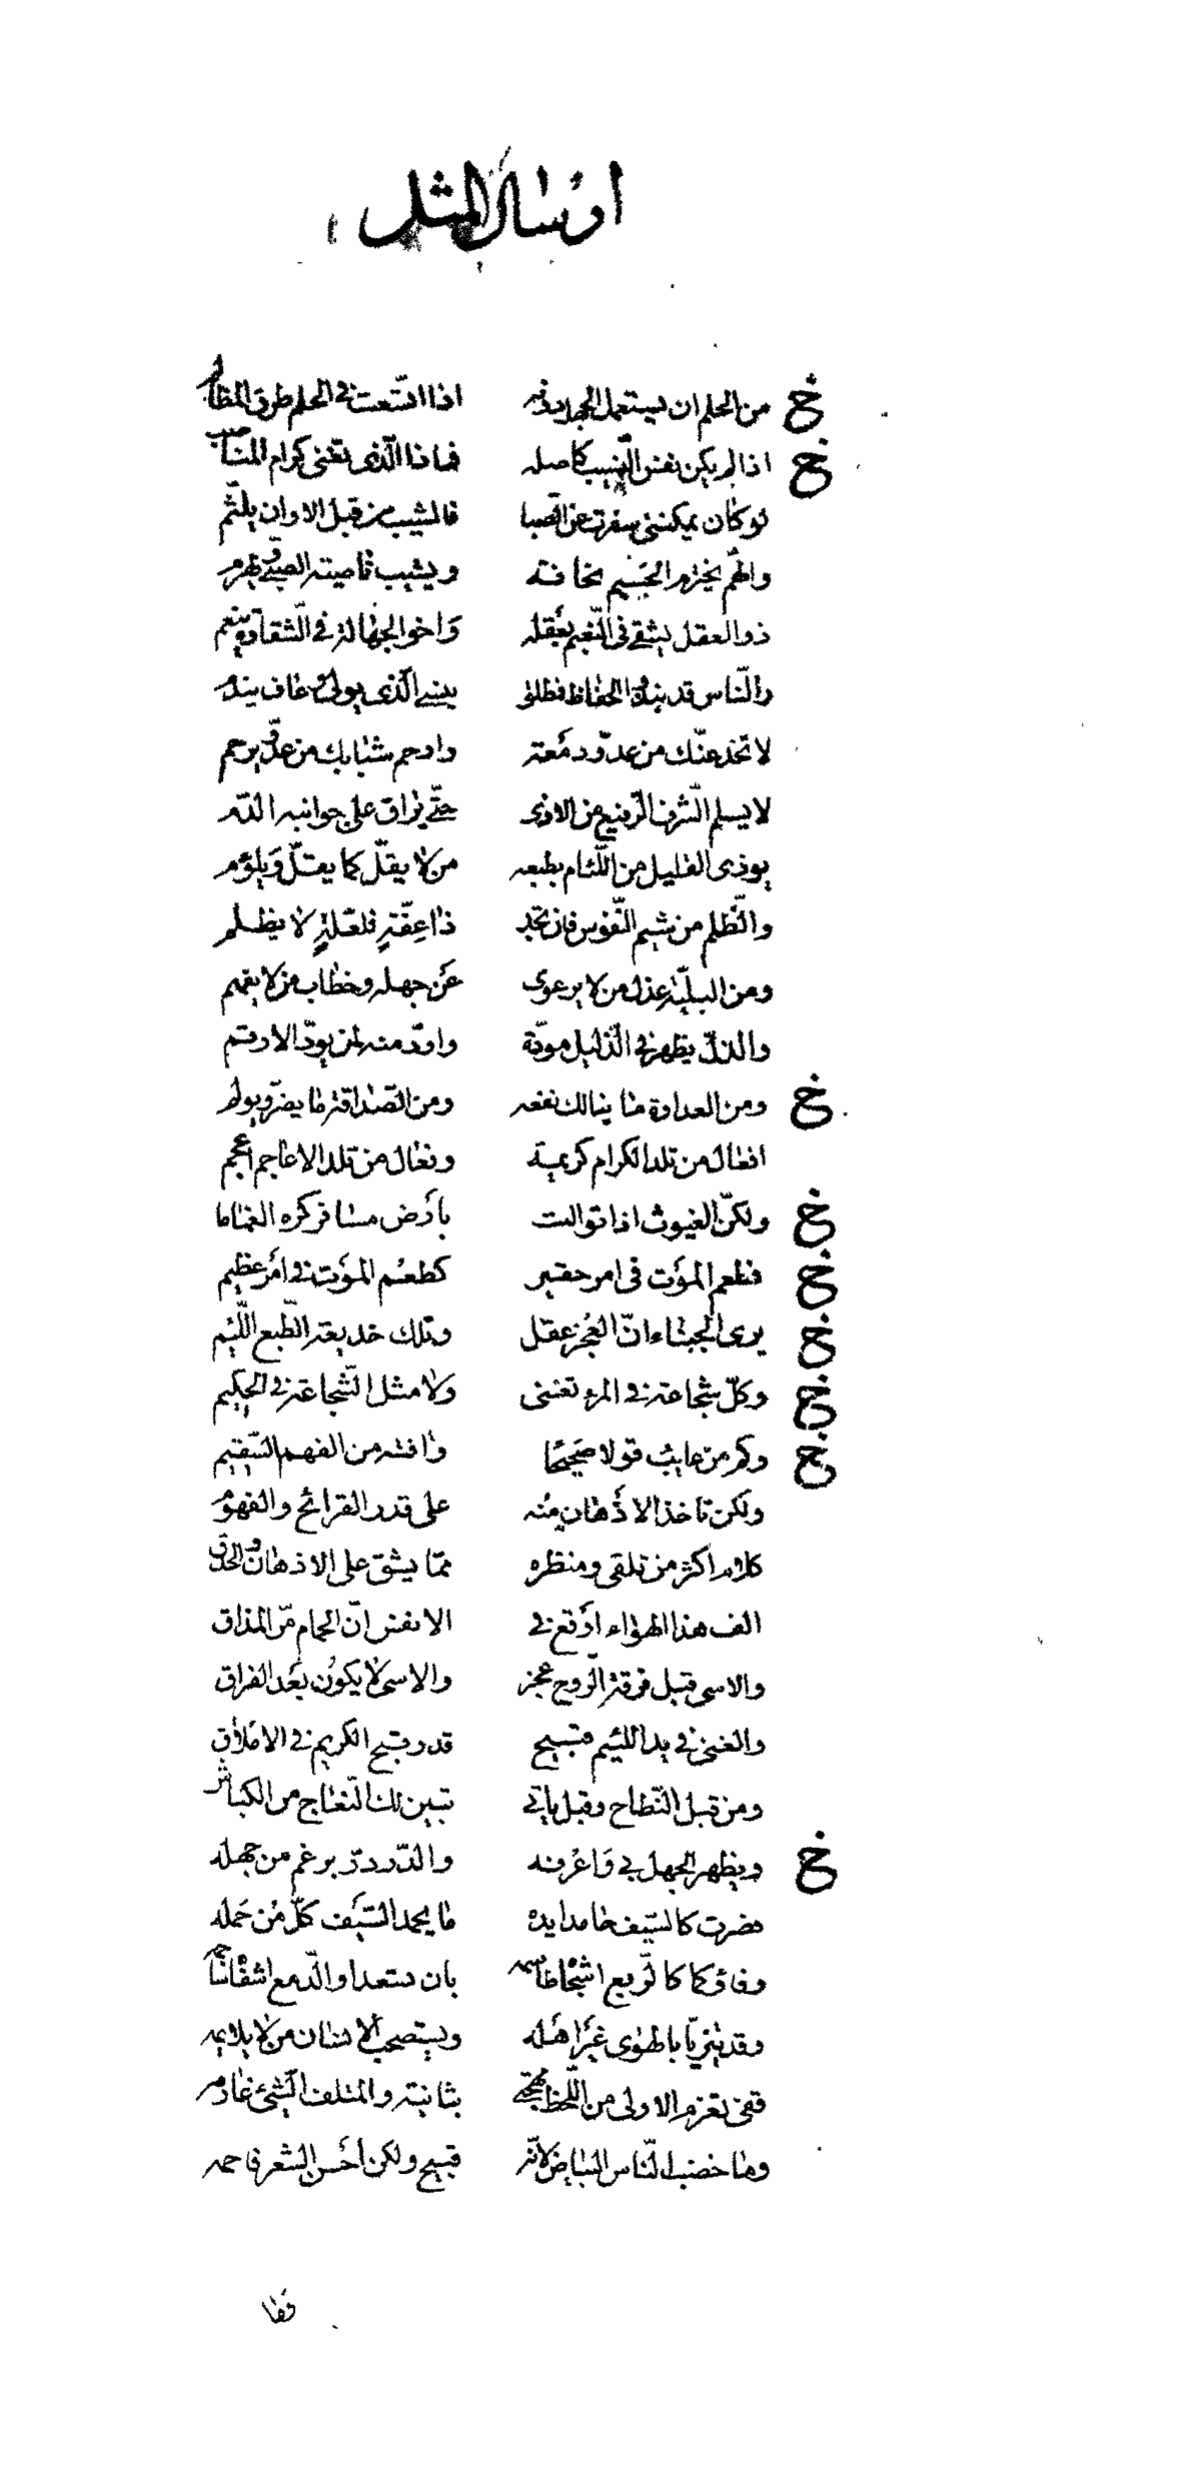 ارسال المثل
خ من الحلم ان يستعمل الجهل دونه اذا اتّسعت في الحلم طرق المظالم
خ اذا لم يكن نفس النّسيب كاصله فماذا الّذى تغنى كرام المناصب
لو كان يمكننى سفرت عن الصّبا فالشيب من قبل الاوان يلثّم
والهمّ يخترم الجسيم نحافة ويشيب ناصية الصبيّ ويهرم
ذو العقل يشقى فى النّعيم بعقله وَاخو الجهالة في الشّقاوة ينعم
والنّاس قد نبذوا الحفاظ فمطلق ينسى الّذى يولى وعاف يندم
لا تخدعنّك من عدوّ دمعته وارحم شبابك من عدوّ يرحم
لا يسلم الشّرف الرّفيع من الاذى حتّى يراق على جوانبه الدّم
يوذى القليل من اللّئام بطبعه من لا يقلّ كما يقلّ وَيلؤم
والظّلم من شيم النّفوس فان تجد ذا عِفّةٍ فلعلّةٍ لا يظلم
ومن البليّة عذل من لا يرعوى عَن جهله وخطاب من لا يفهم
والذلّ يظهر في الذّليل مودّة واودّ منه لمن يودّ الارقم
خ ومن العداوة ما ينالك نفعه ومن الصّداقة ما يضرّ ويولم
افعال من تلد الكرام كريمة وفعال من تلد الاعاجم اعجم
خ ولكنّ الغيوث اذا توالت بأرض مسافر كره الغماما
خ فطعم المؤت فى امر حقير كطعم المؤت في امر عظيم
خ يرى الجبناء انّ العجز عقل وتلك خديعة الطّبع اللّئيم
خ وكلّ شجاعة في المرء تغنى ولا مثل الشّجاعة في الحكيم
خ وكم من عايب قولا صحيحًا وافته من الفهم السّقيم
ولكن تاخذ الاذهان منه على قدر القرائح والفهوم
كلام اكثر من تلقى ومنظره ممّا يشق على الاذهان والحدق
الف هذا الهواء اوقع في الانفس انّ الحمام مرّ المذاق
والاسى قبل فرقة الرّوح عجز والاسى لا يكون بعَد الفراق
والغنى في يد اللئيم قبيح قدر قبح الكريم في الاملاق
ومن قبل النّطاح وقبل ياتي تبين لك النّعاج من الكباش
خ ويظهر الجهل بي وَاعرفه والدّر درّ برغم من جهله
فصرت كالسّيف حامدا يده ما يحمد السّيف كلّ من حمله
وفاؤكما كالرّبع اشجاه طاسمه بان تسعدا والدّمع اشفاه ساجمه
وقد يتزيّا بالهوى غير اهله ويستصحب الانسان من لا يلايمه
قفى تغرم الاولى من اللّحظ مهجتي بثانية والمتلف الشّئ غارمه
وما خضب النّاس البياض لانّه قبيح ولكن احَسن الشعر فاحمه
فقا